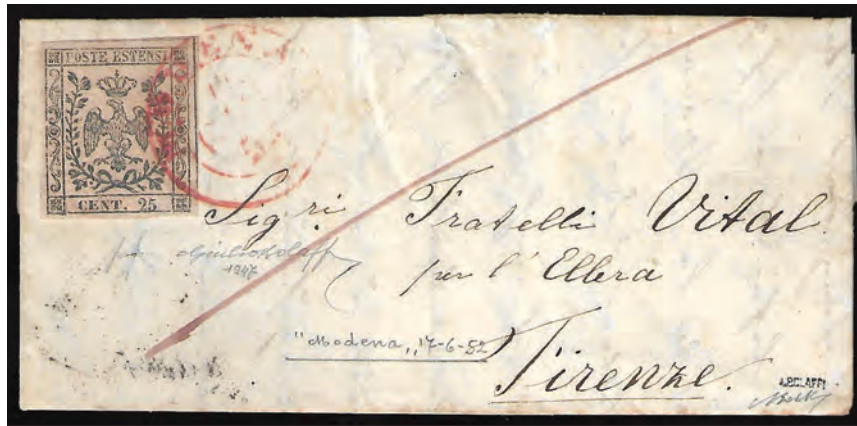 POSTE ESTENSI
CENT. 25
Sig.ri Fratelli Vital
per l' Ellera
1947
"Modena,, 17-6-52
Firenze.
A.BOLAFFI